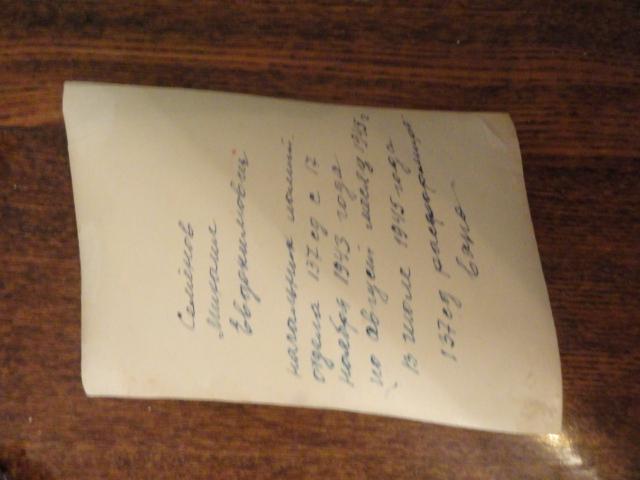 Семёнов
Михаил
начальник полит
отдела 137 сд с 17
ноября 1943 года
по август месяц 1945 г
В июле 1945 года
137 сд расформиро
вана